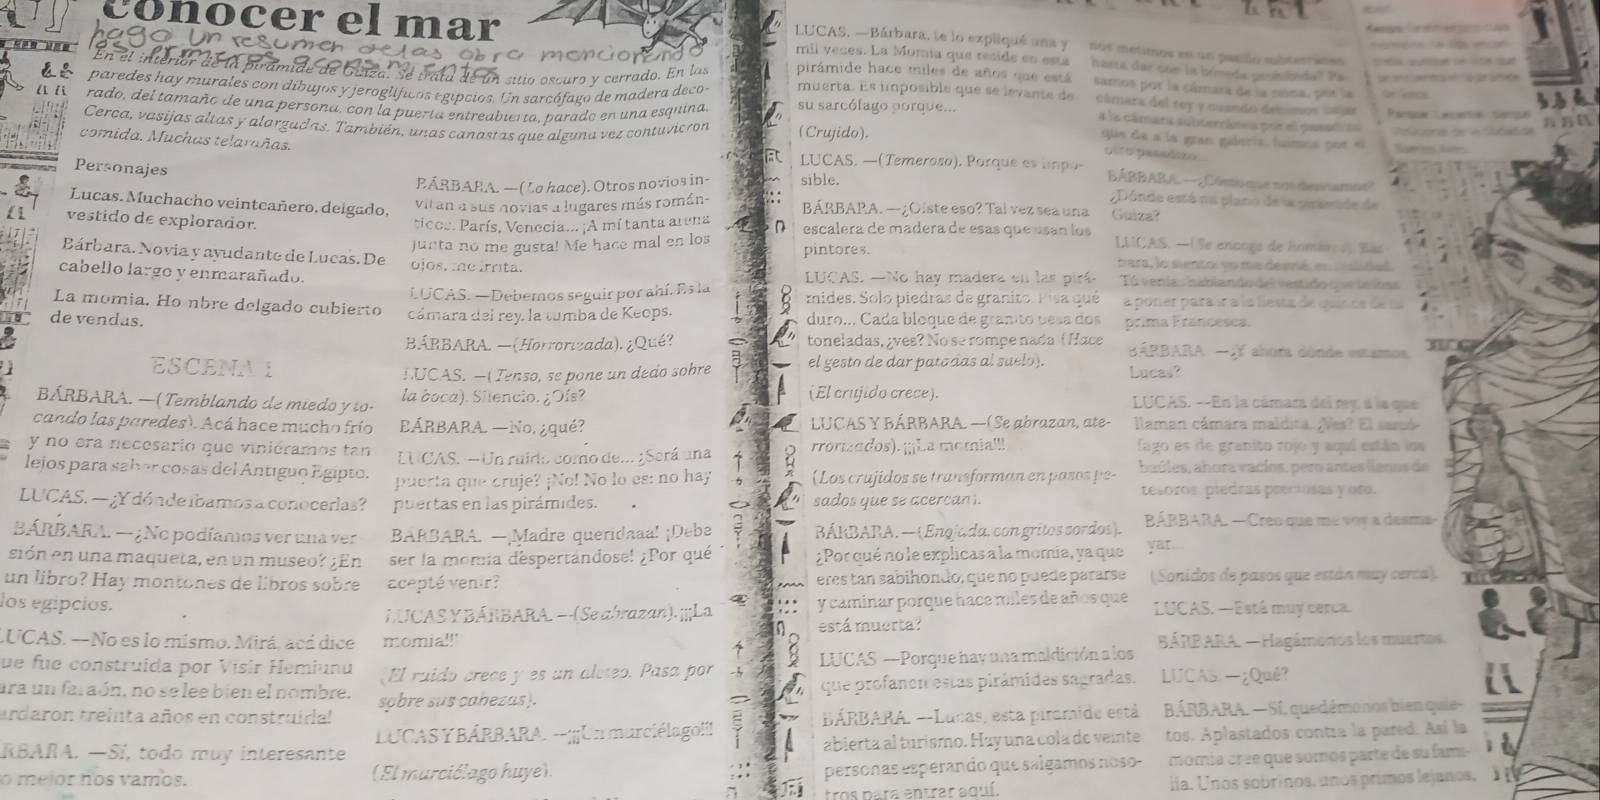 conocer el mar
hago un resumen de las obra mencionando
los primeros acontecimientos
En el interior de la pirámide de Guiza. Se trata de un sitio oscuro y cerrado. En las
paredes hay murales con dibujos y jeroglíficos egipcios. Un sarcófago de madera deco-
rado, del tamaño de una persona, con la puerta entreabierta, parado en una esquina.
Cerca, vasijas altas y alargadas. También, unas canastas que alguna vez contuvieron
comida. Muchas telarañas.
Personajes
Lucas. Muchacho veinteañero, delgado,
vestido de explorador.
Bárbara. Novia y ayudante de Lucas. De
cabello largo y enmarañado.
La momia. Hombre delgado cubierto
de vendas.
ESCENA 1
BÁRBARA. —(Temblando de miedo y to-
cando las paredes). Acá hace mucho frío
y no era necesario que viniéramos tan
lejos para saber cosas del Antiguo Egipto.
LUCAS. —¿Y dónde íbamos a conocerlas?
BÁRBARA. —¿No podíamos ver una ver
sión en una maqueta, en un museo? ¿En
un libro? Hay montones de libros sobre
los egipcios.
LUCAS. —No es lo mismo. Mirá, acá dice
ue fue construida por Visir Hemiunu
ara un faraón, no se lee bien el nombre.
ardaron treinta años en construirla!
RBARA. —Sí, todo muy interesante
o mejor nos vamos.
BÁRBARA. —(Lo hace). Otros novios in-
vitan a sus novias a lugares más román-
ticos. París, Venecia... ¡A mí tanta arena
junta no me gusta! Me hace mal en los
ojos, me irrita.
LUCAS. —Debemos seguir por ahí. Es la
cámara del rey, la tumba de Keops.
BÁRBARA. —(Horrorizada). ¿Qué?
LUCAS. —(Tenso, se pone un dedo sobre
la boca). Silencio. ¿Oís?
BÁRBARA. —No, ¿qué?
LUCAS. —Un ruido como de... ¿Será una
puerta que cruje? ¡No! No lo es: no hay
puertas en las pirámides.
BÁRBARA. —¡Madre queridaaa! ¡Debe
ser la momia despertándose! ¿Por qué
acepté venir?
LUCAS Y BÁRBARA. —(Se abrazan). ¡¡¡La
momia!!!
(El ruido crece y es un aleteo. Pasa por
sobre sus cabezas).
LUCAS Y BÁRBARA. —¡¡¡Un murciélago!!!
(El murciélago huye).
LUCAS. —Bárbara, te lo expliqué una y
mil veces. La Momia que reside en esta
pirámide hace miles de años que está
muerta. Es imposible que se levante de
su sarcófago porque...
(Crujido).
LUCAS. —(Temeroso). Porque es impo-
sible.
BÁRBARA. —¿Oíste eso? Tal vez sea una
escalera de madera de esas que usan los
pintores.
LUCAS. —No hay madera en las pirá-
mides. Solo piedras de granito. Pisa qué
duro... Cada bloque de granito pesa dos
toneladas, ¿ves? No se rompe nada (Hace
el gesto de dar patadas al suelo).
(El crujido crece).
LUCAS Y BÁRBARA. —(Se abrazan, ate-
rrorizados). ¡¡¡La momia!!!
(Los crujidos se transforman en pasos pe-
sados que se acercan).
BÁRBARA. —(Enojada, con gritos sordos).
¿Por qué no le explicas a la momia, ya que
eres tan sabihondo, que no puede pararse
y caminar porque hace miles de años que
está muerta?
LUCAS —Porque hay una maldición a los
que profanen estas pirámides sagradas.
BÁRBARA. —Lucas, esta pirámide está
abierta al turismo. Hay una cola de veinte
personas esperando que salgamos noso-
tros para entrar aquí.
nos metimos en un pasillo subterráneo
hasta dar con la
samos por la cámara de la reina, por la
cámara del rey y cuando debimos bajar
a la cámara subterránea por el pasadizo
que da a la gran galería, fuimos por el
otro pasadizo...
BÁRBARA. —¿Cómo que nos
¿Dónde está mi plano de la pirámide de
Guiza?
LUCAS. —(Se encoge de hombros). Bár-
bara, lo siento: yo me desvié,
Tú venías hablando del vestido
a poner para ir a la fiesta de quince de tu
prima Francesca.
BÁRBARA. —¿Y ahora dónde estamos,
Lucas?
LUCAS. —En la cámara del rey, a la que
llaman cámara maldita. ¿Ves? El sarcó-
fago es de granito rojo y aquí están los
baúles, ahora vacíos, pero antes llenos de
tesoros, piedras preciosas y oro.
BÁRBARA. —Creo que me voy a desma-
yar...
(Sonidos de pasos que están muy cerca).
LUCAS. —Está muy cerca.
BÁRBARA. —Hagámonos los muertos.
LUCAS. —¿Qué?
BÁRBARA. —Sí, quedémonos bien quie-
tos. Aplastados contra la pared. Así la
momia cree que somos parte de su fami-
lia. Unos sobrinos, unos primos lejanos.